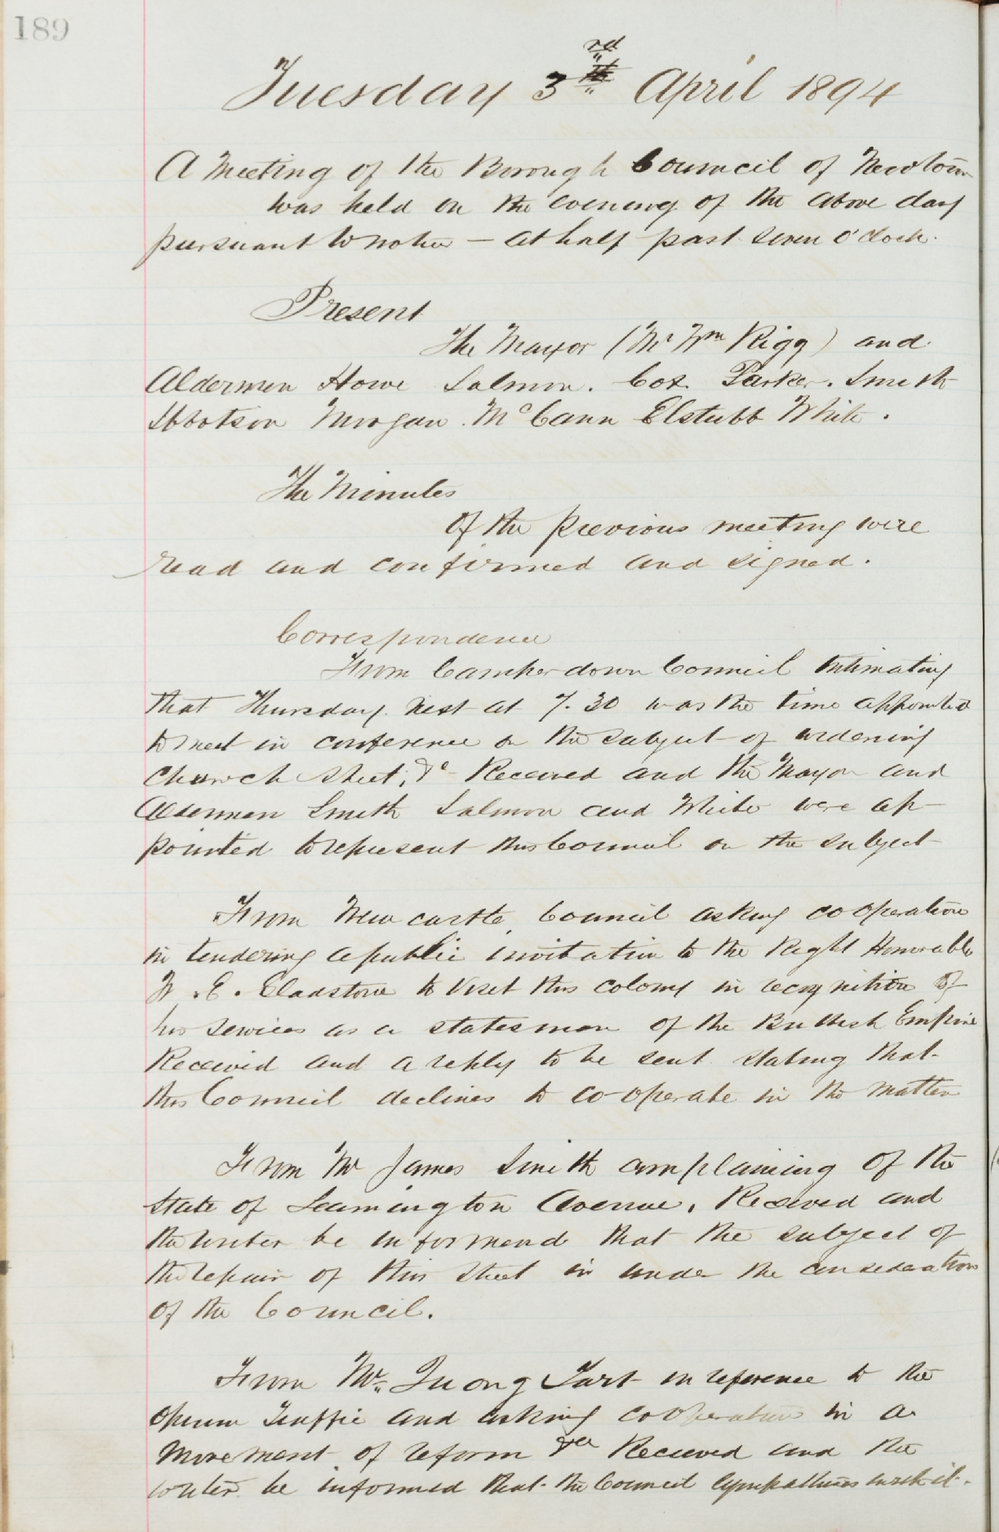 189
Tuesday 3rd April 1894
A Meeting of the Borough Council of Newtown
was held on the evening of the above day
pursuant to notice — at half past seven o'clock.
Present
The Mayor (Mr Wm Rigg) and
Aldermen Howe Salmon. Cox. Parker. Smith
Ibbotson Morgan. McCann Elstubb White.
The Minutes
Of the previous meeting were
read and confirmed and signed.
Correspondence
From Camperdown Council intimating
that Thursday next at 7.30 was the time appointed
to meet in conference on the subject of widening
Church Street, &c Received and the Mayor and
Aldermen Smith Salmon and White were ap-
pointed to represent this Council on the subject
From Newcastle Council asking cooperation
in tendering a public invitation to the Right Honorable
W. E. Gladstone to visit this colony in recognition of
his services as a statesman of the British Empire
Received and a reply to be sent stating that
this Council declines to co-operate in the matter
From Mr James Smith complaining of the
state of Leamington Avenue. Received and
the writer be informed that the subject of
the repair of this street is under the consideration
of the Council.
From Mr. Quong Tart in reference to the
opium traffic and asking cooperation in a
movement of reform &c Received and the
writer be informed that the Council sympathises with it.